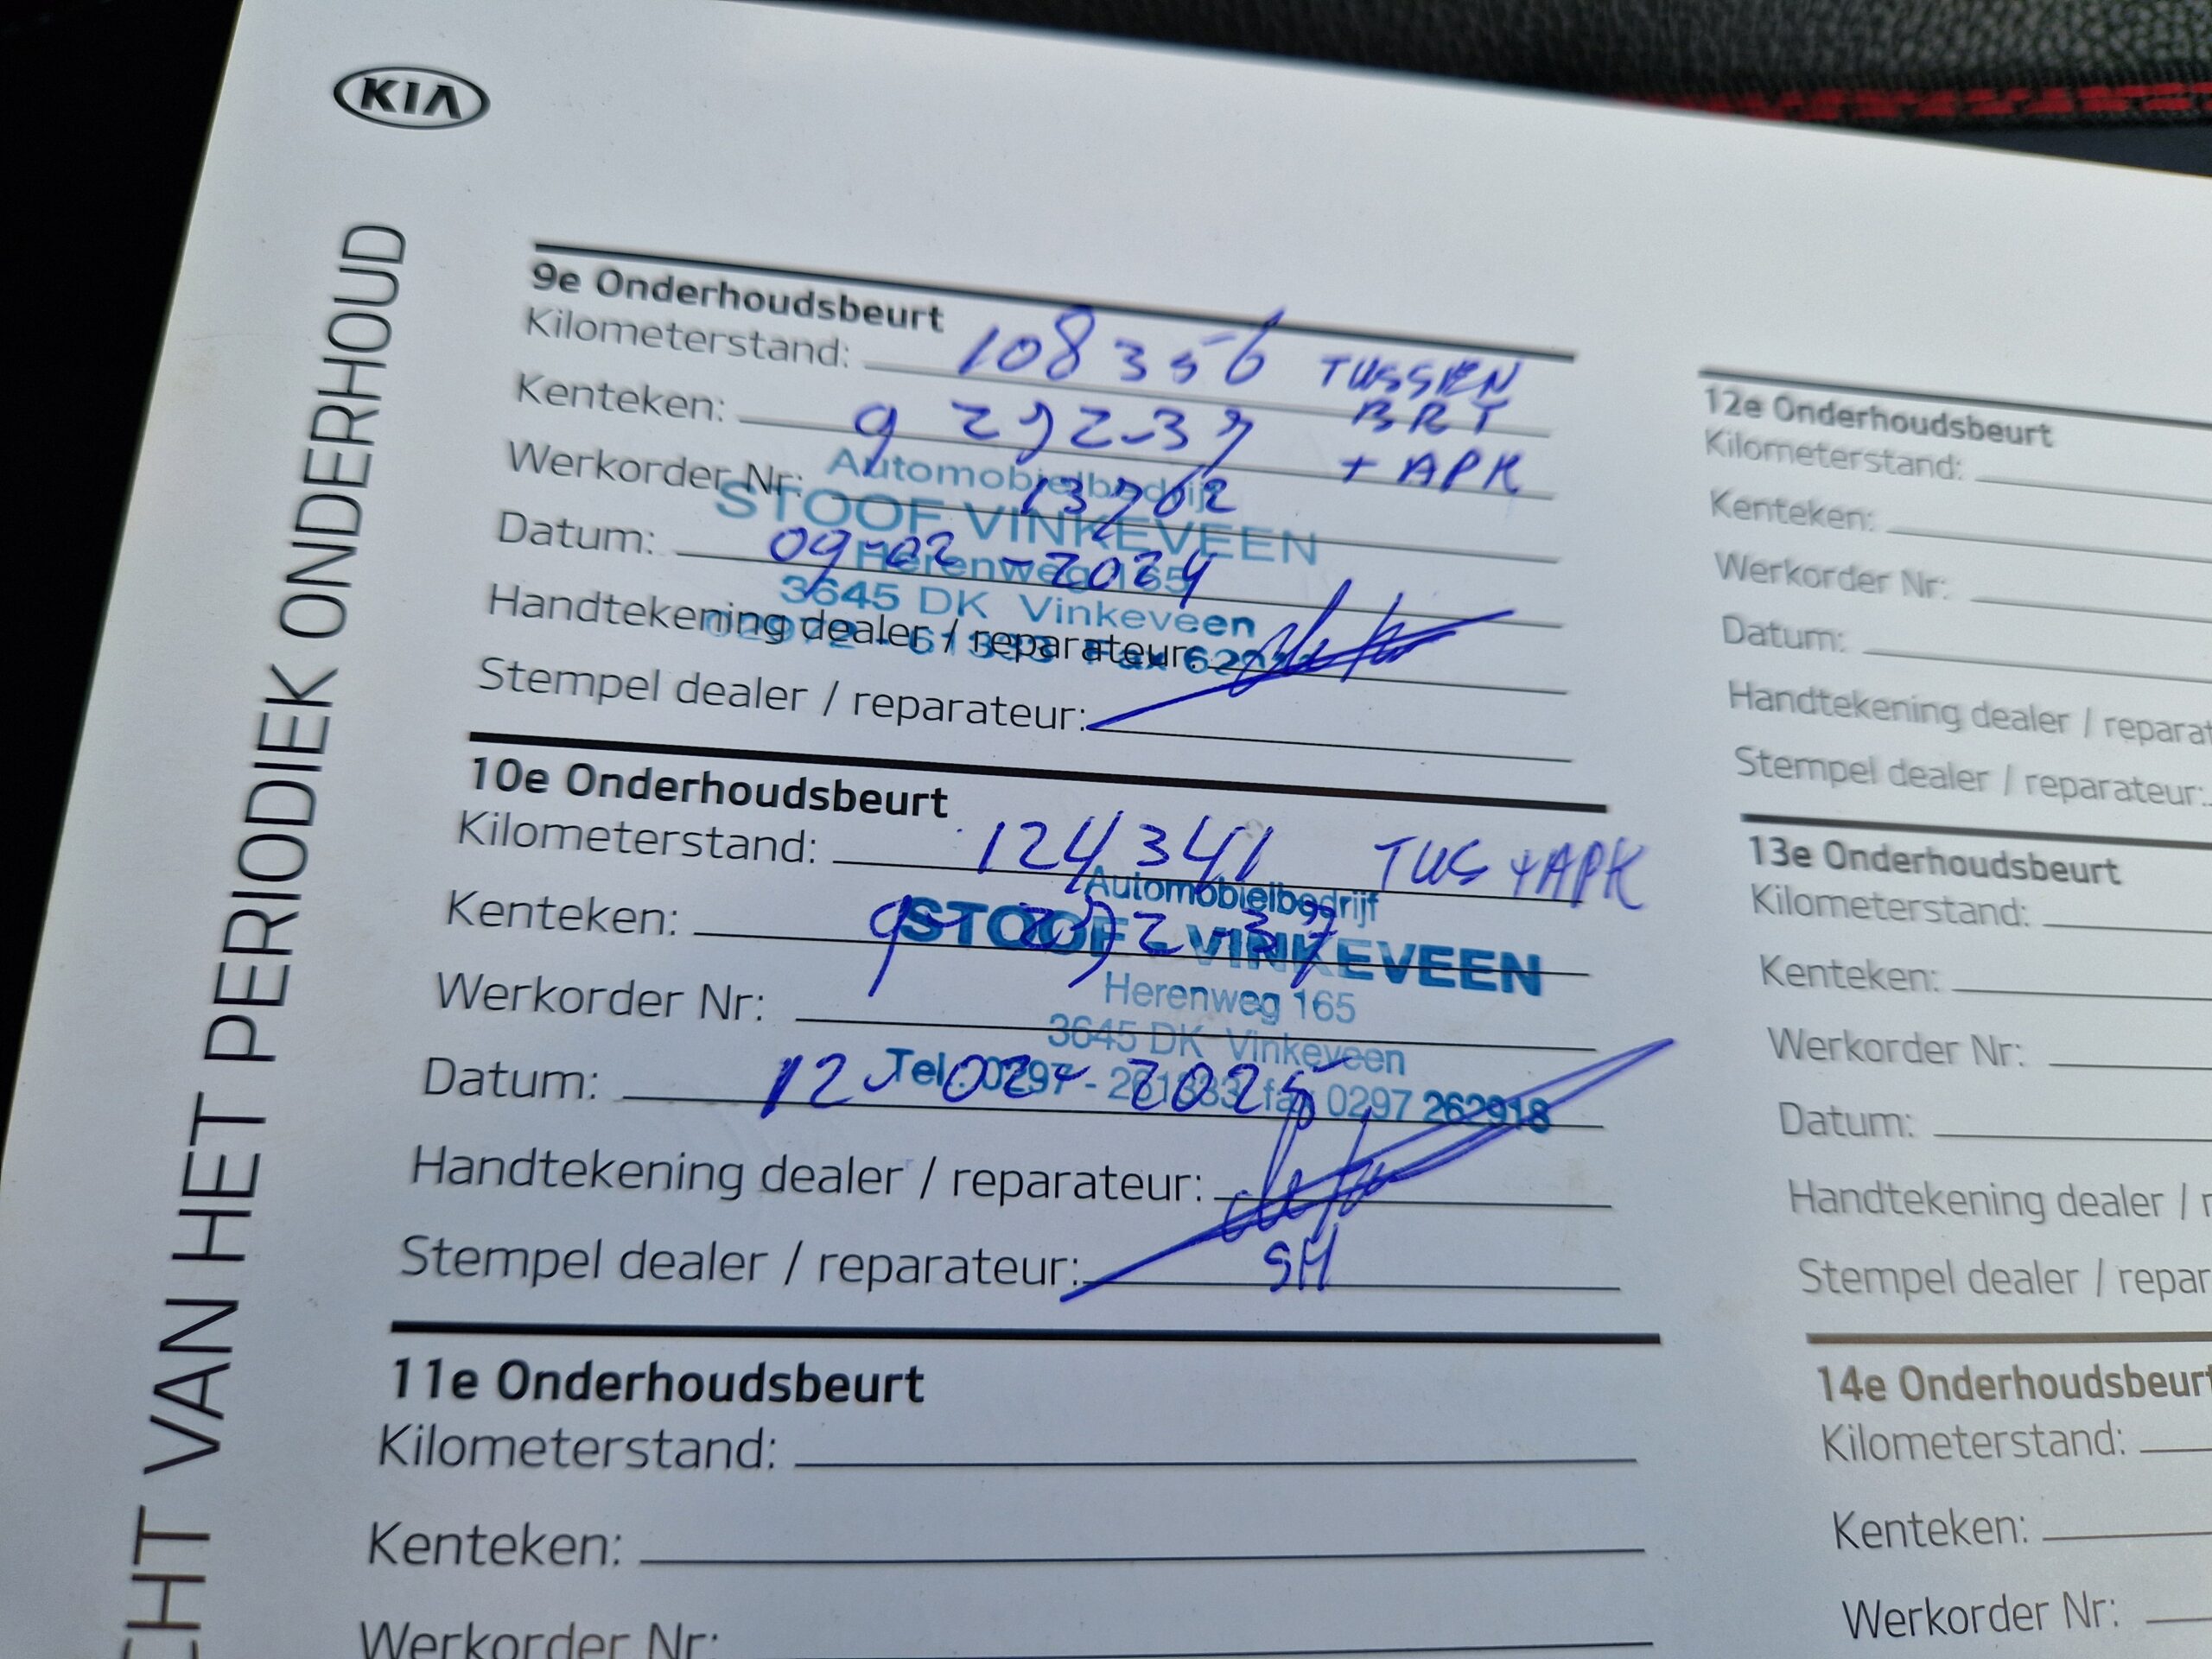 KIA
CHT VAN HET PERIODIEK ONDERHOUD
9e Onderhoudsbeurt
Kilometerstand: 108356 TUSSEN
BRT
Kenteken:
+ APK
Automobielbedrijf
Werkorder Nr: 13762
STOOF VINKEVEEN
Datum: 09-02-2024
Herenweg 165
3645 DK Vinkeveen
Handtekening dealer / reparateur:
Stempel dealer / reparateur:
10e Onderhoudsbeurt
Kilometerstand: 124341 TUS + APK
Automobielbedrijf
Kenteken:
STOOF - VINKEVEEN
Herenweg 165
Werkorder Nr:
3645 DK Vinkeveen
Tel. 0297 - 261333 fax 0297 262918
Datum: 12-02-2025
Handtekening dealer / reparateur:
Stempel dealer / reparateur: SH
11e Onderhoudsbeurt
Kilometerstand:
Kenteken:
Werkorder Nr:
12e Onderhoudsbeurt
Kilometerstand:
Kenteken:
Werkorder Nr:
Datum:
Handtekening dealer / reparat
Stempel dealer / reparateur:
13e Onderhoudsbeurt
Kilometerstand:
Kenteken:
Werkorder Nr:
Datum:
Handtekening dealer / r
Stempel dealer / repar
14e Onderhoudsbeurt
Kilometerstand:
Kenteken:
Werkorder Nr: